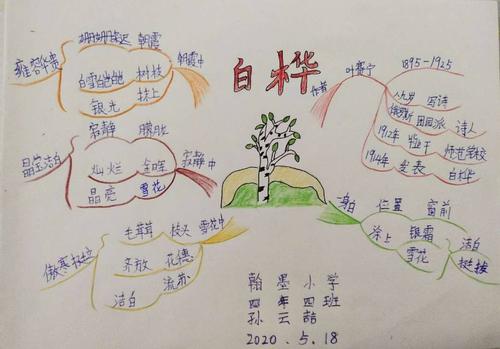 白桦
作者
叶赛宁
1895-1925
八九岁 写诗
俄罗斯 田园派 诗人
1912年 毕业于 师范学校
1914年 发表 白桦
身白 位置 窗前
涂上 银霜
雪花
洁白
挺拔
雪花中
毛茸茸 枝头
齐放 花穗
洁白 流苏
傲寒挺拉
寂静中
寂静 朦胧
灿烂 金晖
晶亮 雪花
晶莹洁白
朝霞中
姗姗来迟 朝霞
白雪皑皑 树枝
银光 抹上
雍容华贵
翰墨小学
四年四班
孙云喆
2020.5.18